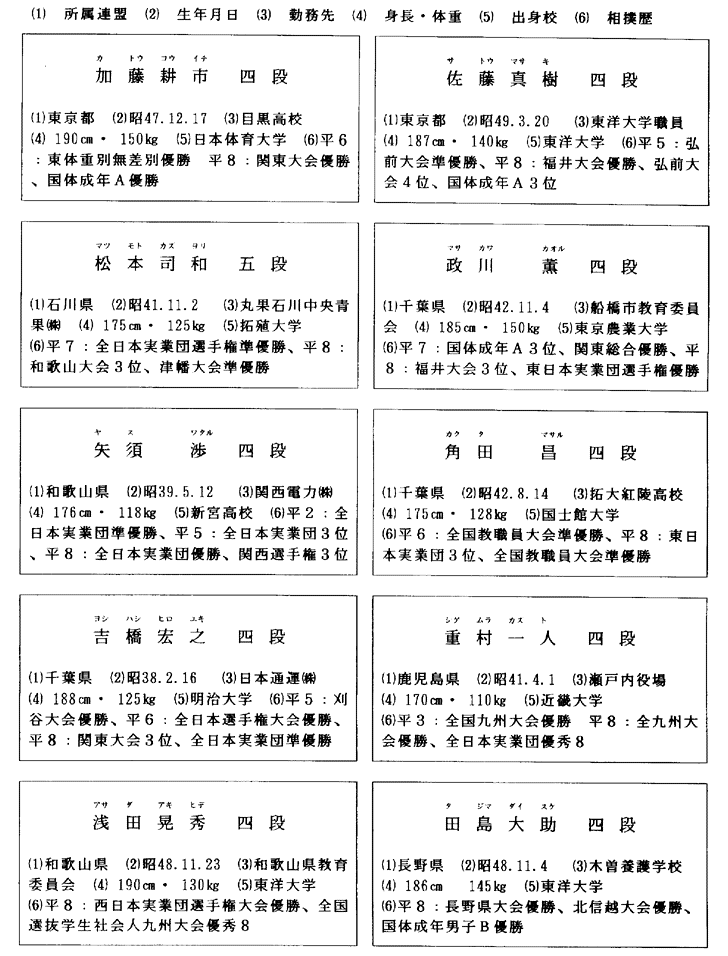 (1) 所属連盟 (2) 生年月日 (3) 勤務先 (4) 身長・体重 (5) 出身校 (6) 相撲歴
カ トウ コウ イチ
加藤耕市 四段
(1)東京都 (2)昭47.12.17 (3)目黒高校
(4) 190cm・150kg (5)日本体育大学 (6)平6
：東体重別無差別優勝 平8：関東大会優勝
、国体成年A優勝
サ トウ マサ キ
佐藤真樹 四段
(1)東京都 (2)昭49.3.20 (3)東洋大学職員
(4) 187cm・140kg (5)東洋大学 (6)平5：弘
前大会準優勝、平8：福井大会優勝、弘前大
会4位、国体成年A3位
マツ モト カズ ヨリ
松本司和 五段
(1)石川県 (2)昭41.11.2 (3)丸果石川中央青
果㈱ (4) 175cm・125kg (5)拓殖大学
(6)平7：全日本実業団選手権準優勝、平8：
和歌山大会3位、津幡大会準優勝
マサ カワ カオル
政川 薫 四段
(1)千葉県 (2)昭42.11.4 (3)船橋市教育委員
会 (4) 185cm・150kg (5)東京農業大学
(6)平7：国体成年A3位、関東総合優勝、平
8：福井大会3位、東日本実業団選手権優勝
ヤ ス ワタル
矢須 渉 四段
(1)和歌山県 (2)昭39.5.12 (3)関西電力㈱
(4) 176cm・118kg (5)新宮高校 (6)平2：全
日本実業団準優勝、平5：全日本実業団3位
、平8：全日本実業団優勝、関西選手権3位
カク タ マサル
角田 昌 四段
(1)千葉県 (2)昭42.8.14 (3)拓大紅陵高校
(4) 175cm・128kg (5)国士館大学
(6)平6：全国教職員大会準優勝、平8：東日
本実業団3位、全国教職員大会準優勝
ヨシ ハシ ヒロ ユキ
吉橋宏之 四段
(1)千葉県 (2)昭38.2.16 (3)日本通運㈱
(4) 188cm・125kg (5)明治大学 (6)平5：刈
谷大会優勝、平6：全日本選手権大会優勝、
平8：関東大会3位、全日本実業団準優勝
シゲ ムラ カズ ト
重村一人 四段
(1)鹿児島県 (2)昭41.4.1 (3)瀬戸内役場
(4) 170cm・110kg (5)近畿大学
(6)平3：全国九州大会優勝 平8：全九州大
会優勝、全日本実業団優秀8
アサ ダ アキ ヒデ
浅田晃秀 四段
(1)和歌山県 (2)昭48.11.23 (3)和歌山県教育
委員会 (4) 190cm・130kg (5)東洋大学
(6)平8：西日本実業団選手権大会優勝、全国
選抜学生社会人九州大会優秀8
タ ジマ ダイ スケ
田島大助 四段
(1)長野県 (2)昭48.11.4 (3)木曽養護学校
(4) 186cm 145kg (5)東洋大学
(6)平8：長野県大会優勝、北信越大会優勝、
国体成年男子B優勝